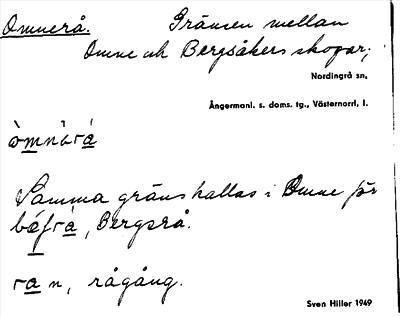 Omnerå. Gränsen mellan
Omne och Bergsåkers skogar;
Nordingrå sn,
Ångermanl. s. doms. tg., Västernorrl, l.
òmnə̀rá
Samma gräns kallas i Omne för
bǽfrà, Bergsrå.
ra n, rågång.
Sven Hiller 1949